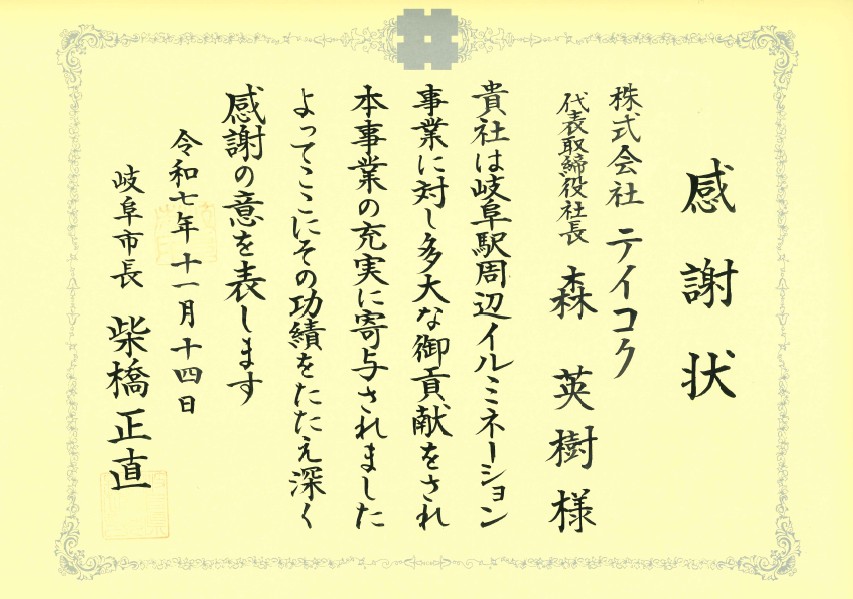 感謝状
株式会社 テイコク
代表取締役社長 森 英樹 様
貴社は岐阜駅周辺イルミネーション
事業に対し多大な御貢献をされ
本事業の充実に寄与されました
よってここにその功績をたたえ深く
感謝の意を表します
令和七年十一月十四日
岐阜市長 柴橋正直